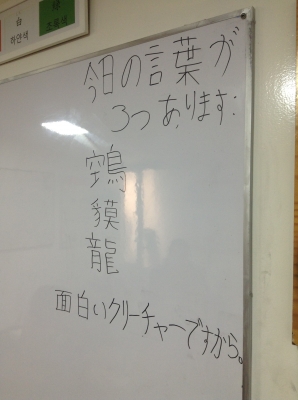 白
하얀색
今日の言葉が
3つあります:
鵼
貘
龍
面白いクリーチャーですから。